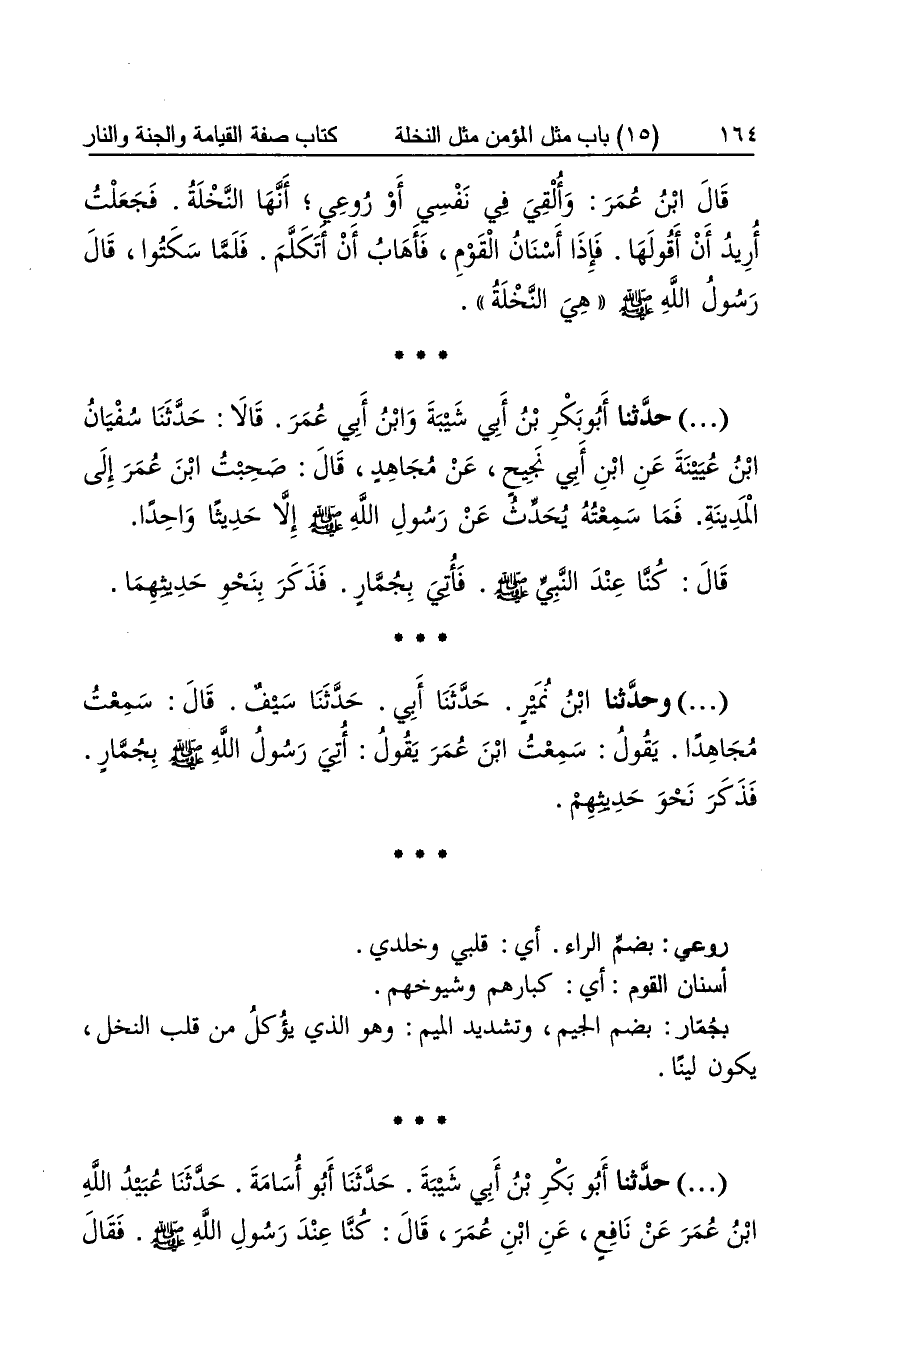 ١٦٤ (١٥) باب مثل المؤمن مثل النخلة كتاب صفة القيامة والجنة والنار
قَالَ ابْنُ عُمَرَ : وَأُلْقِيَ فِي نَفْسِي أَوْ رُوعِي ؛ أَنَّهَا النَّخْلَةُ . فَجَعَلْتُ
أُرِيدُ أَنْ أَقُولَهَا . فَإِذَا أَسْنَانُ الْقَوْمِ ، فَأَهَابُ أَنْ أَتَكَلَّمَ . فَلَمَّا سَكَتُوا ، قَالَ
رَسُولُ اللَّهِ ﷺ « هِيَ النَّخْلَةُ » .
* * *
(...) حدَّثنا أَبُوبَكْرِ بْنُ أَبِي شَيْبَةَ وَابْنُ أَبِي عُمَرَ . قَالَا : حَدَّثَنَا سُفْيَانُ
ابْنُ عُيَيْنَةَ عَنِ ابْنِ أَبِي نَجِيحٍ ، عَنْ مُجَاهِدٍ ، قَالَ : صَحِبْتُ ابْنَ عُمَرَ إِلَى
الْمَدِينَةِ. فَمَا سَمِعْتُهُ يُحَدِّثُ عَنْ رَسُولِ اللَّهِ ﷺ إِلَّا حَدِيثًا وَاحِدًا.
قَالَ : كُنَّا عِنْدَ النَّبِيِّ ﷺ . فَأُتِيَ بِجُمَّارٍ . فَذَكَرَ بِنَحْوِ حَدِيثِهِمَا .
* * *
(...) وحدَّثنا ابْنُ نُمَيْرٍ . حَدَّثَنَا أَبِي . حَدَّثَنَا سَيْفٌ . قَالَ : سَمِعْتُ
مُجَاهِدًا . يَقُولُ : سَمِعْتُ ابْنَ عُمَرَ يَقُولُ : أُتِيَ رَسُولُ اللَّهِ ﷺ بِجُمَّارٍ .
فَذَكَرَ نَحْوَ حَدِيثِهِمْ .
* * *
روعي : بضمِّ الراء . أي : قلبي وخلدي .
أسنان القوم : أي : كبارهم وشيوخهم .
بجُمّار : بضم الجيم ، وتشديد الميم : وهو الذي يؤُكلُ من قلب النخل ،
يكون لينًا .
* * *
(...) حدَّثنا أَبُو بَكْرِ بْنُ أَبِي شَيْبَةَ . حَدَّثَنَا أَبُو أُسَامَةَ . حَدَّثَنَا عُبَيْدُ اللَّهِ
ابْنُ عُمَرَ عَنْ نَافِعٍ ، عَنِ ابْنِ عُمَرَ ، قَالَ : كُنَّا عِنْدَ رَسُولِ اللَّهِ ﷺ . فَقَالَ